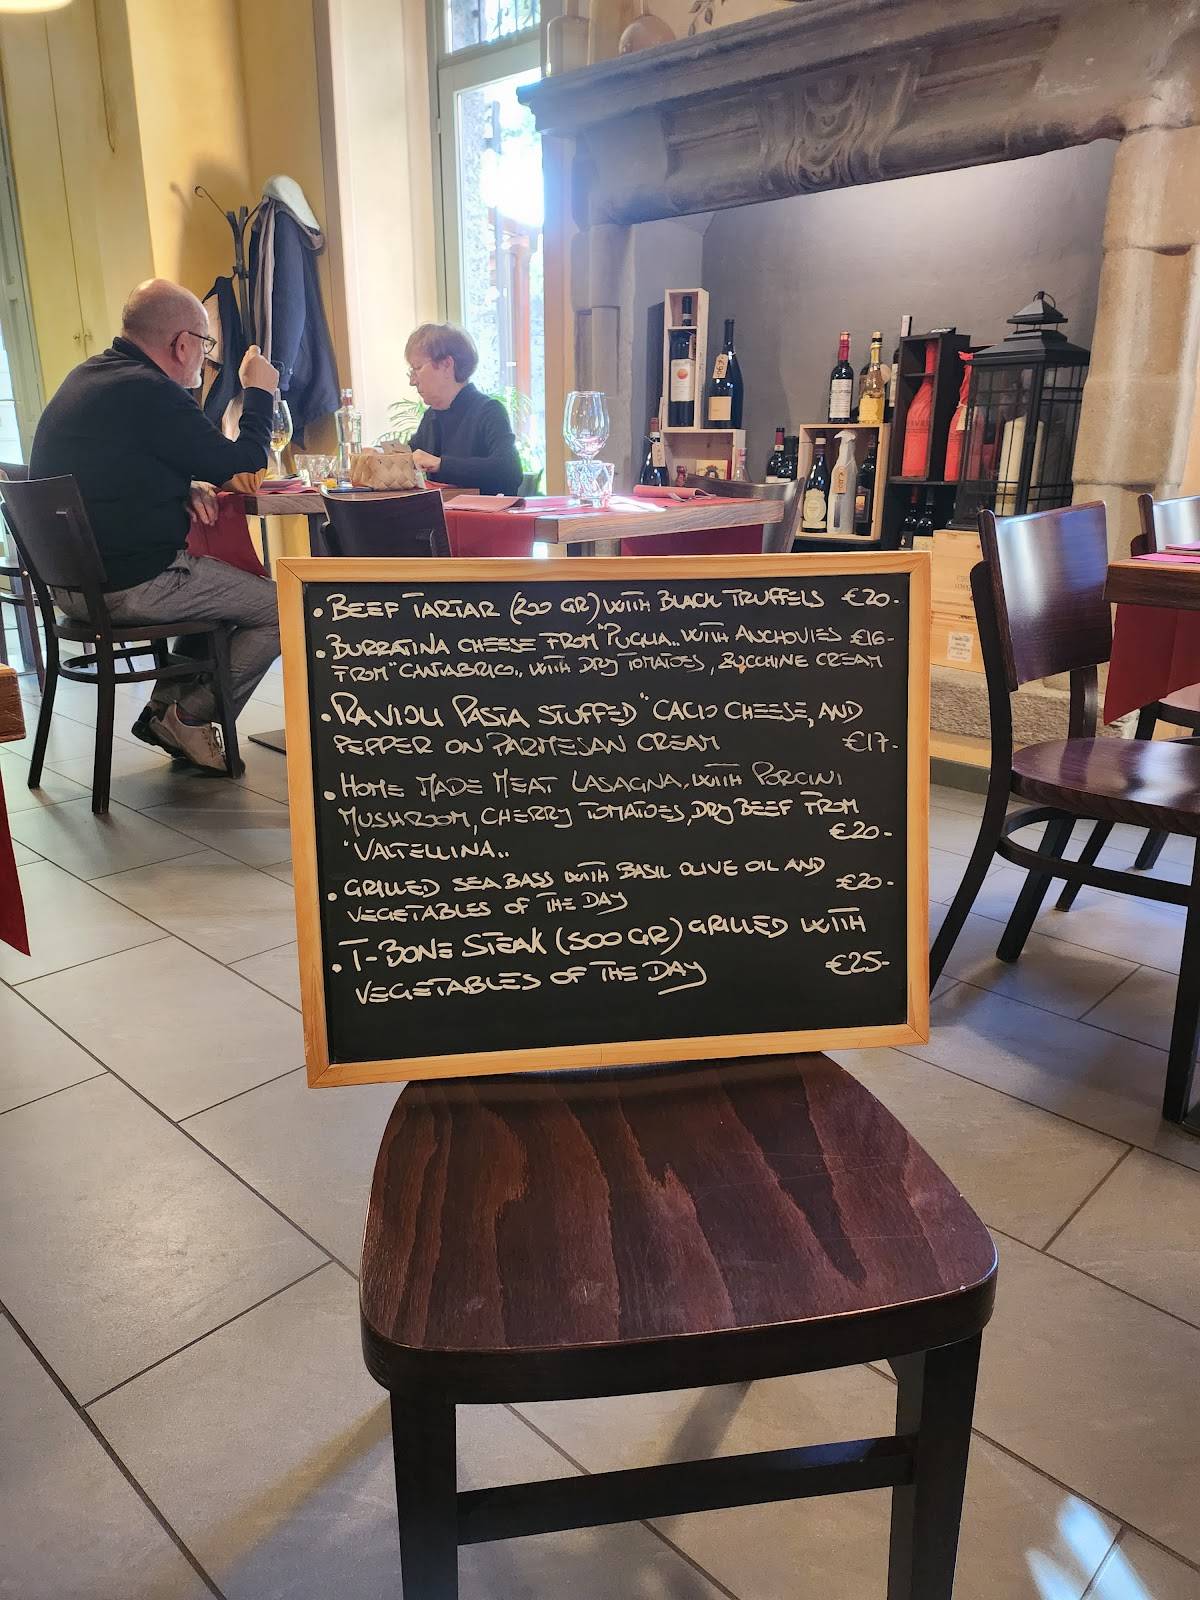 • BEEF TARTAR (200 GR) WITH BLACK TRUFFELS €20-
• BURRATINA CHEESE FROM "PUGLIA.. WITH ANCHOVIES €16-
FROM "CANTABRIC.. WITH DRY TOMATOES, ZUCCHINE CREAM
• RAVIOLI PASTA STUFFED "CACIO CHEESE, AND
PEPPER ON PARMESAN CREAM €17-
• HOME MADE MEAT LASAGNA, WITH PORCINI
MUSHROOM, CHERRY TOMATOES, DRY BEEF FROM
"VALTELLINA.. €20-
• GRILLED SEA BASS WITH BASIL OLIVE OIL AND €20-
VEGETABLES OF THE DAY
• T-BONE STEAK (500 GR) GRILLED WITH
VEGETABLES OF THE DAY €25-